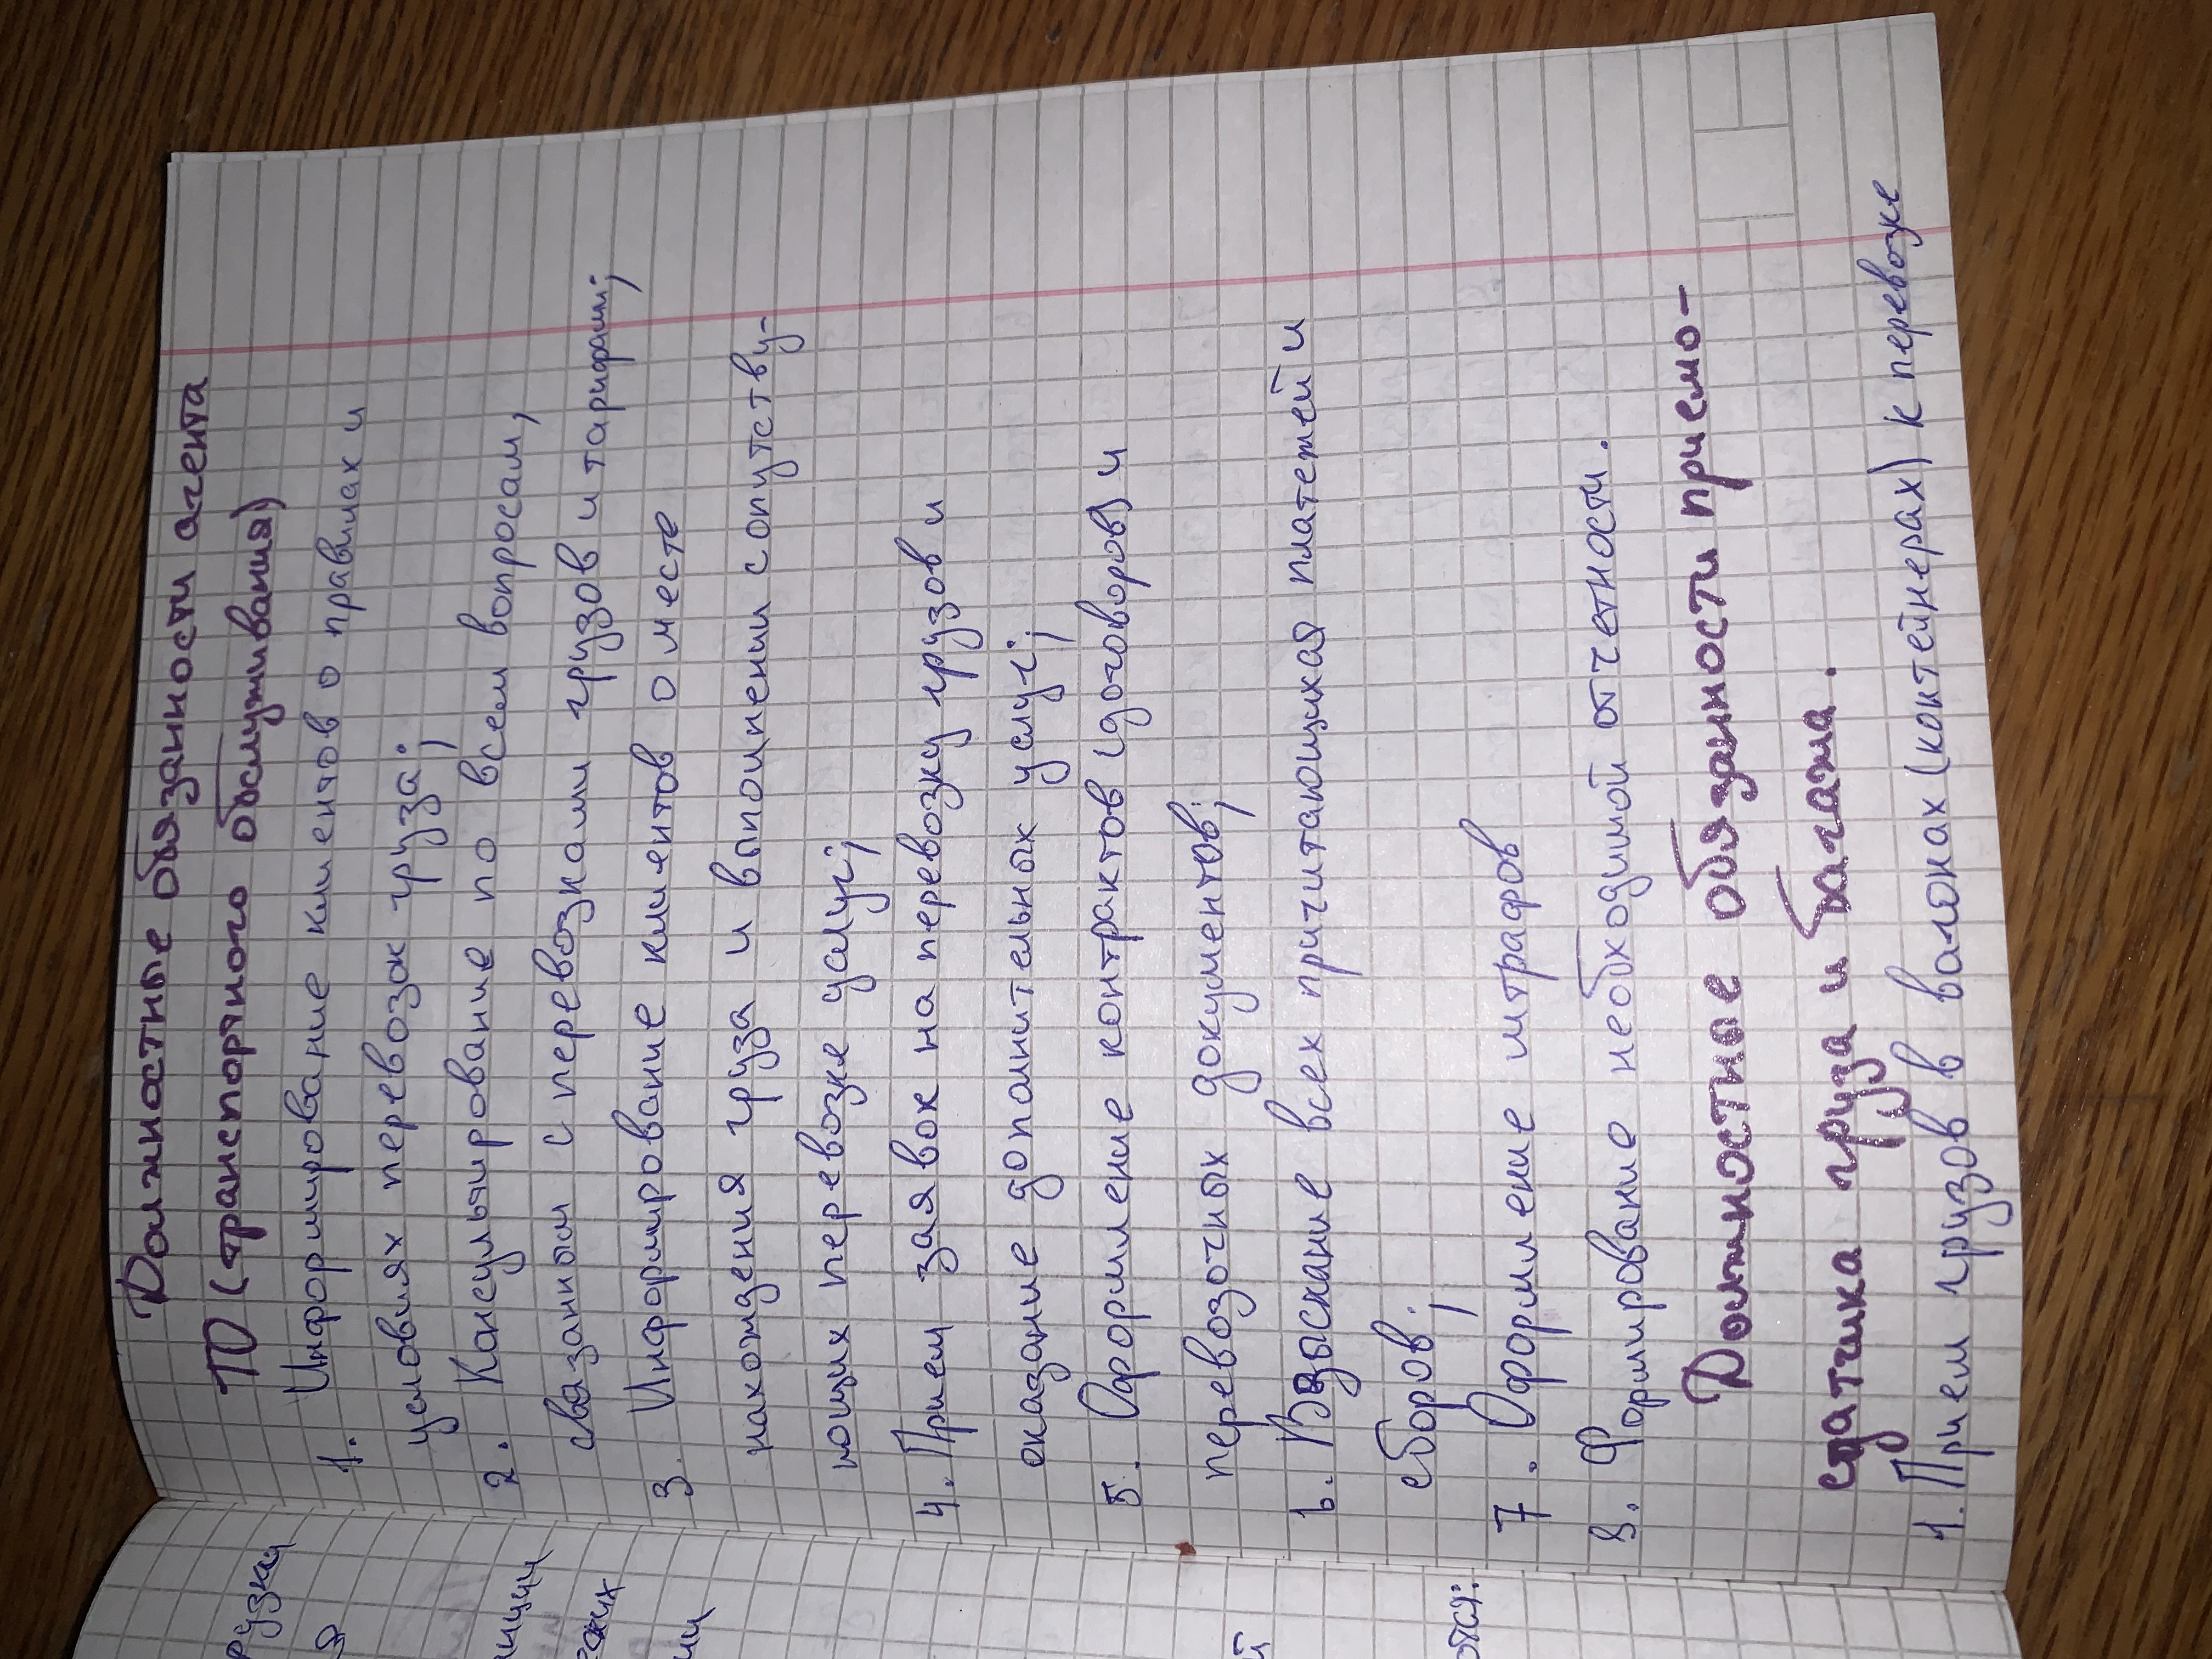 Должностные обязанности агента
ТО (транспортного обслуживания)
1. Информирование клиентов о правилах и
условиях перевозок груза;
2. Консультирование по всем вопросам,
связанным с перевозками грузов и тарифами;
3. Информирование клиентов о месте
нахождения груза и выполнении сопутству-
ющих перевозке услуг;
4. Прием заявок на перевозку грузов и
оказание дополнительных услуг;
5. Оформление контрактов (договоров) и
перевозочных документов;
6. Взыскание всех причитающихся платежей и
сборов;
7. Оформление штрафов
8. Формирование необходимой отчетности.
Должностные обязанности приемо-
сдатчика груза и багажа.
1. Прием грузов в вагонах (контейнерах) к перевозке